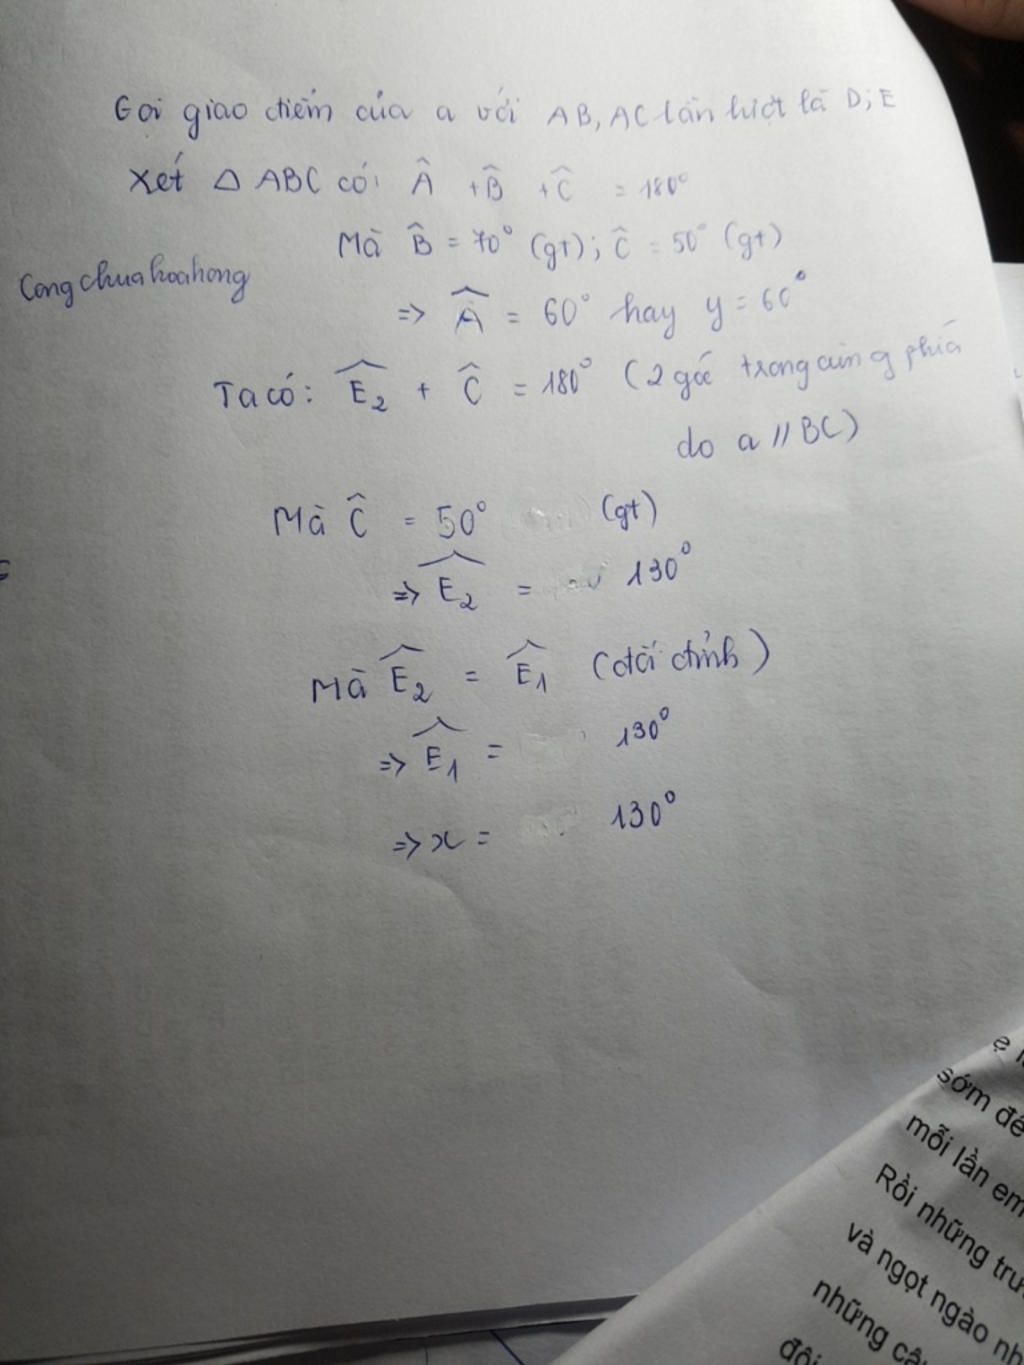 Gọi giao điểm của a với AB, AC lần lượt là D; E
Xét △ ABC có: Â + B̂ + Ĉ = 180°
Mà B̂ = 70° (gt); Ĉ = 50° (gt)
Congchuahoahong
=> Â = 60° hay y = 60°
Ta có: Ê₂ + Ĉ = 180° (2 góc trong cùng phía
do a // BC)
Mà Ĉ = 50° (gt)
=> Ê₂ = 130°
Mà Ê₂ = Ê₁ (đối đỉnh)
=> Ê₁ = 130°
=> x = 130°
sớm đế
mỗi lần em
Rồi những trư
và ngọt ngào nh
những câ
đôi